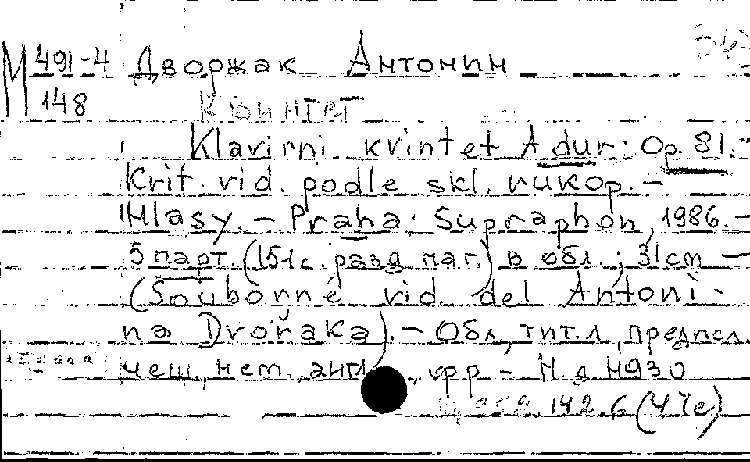 М 491-4 Дворжак Антонин
148 Квинтет
Klavirni kvintet A dur: Op. 81.-
Krit. vid. podle skl. rukop. -
Hlasy. - Praha: Supraphon, 1986. -
5 парт. (151 с. разд. паг.) в обл.; 31 cm -
(Souborné vid. del Antoni-
na Dvořaka). - Обл., тит. л., предисл.
чеш., нем., англ., фр. - Н. д. H930
142.6 (4 Че)